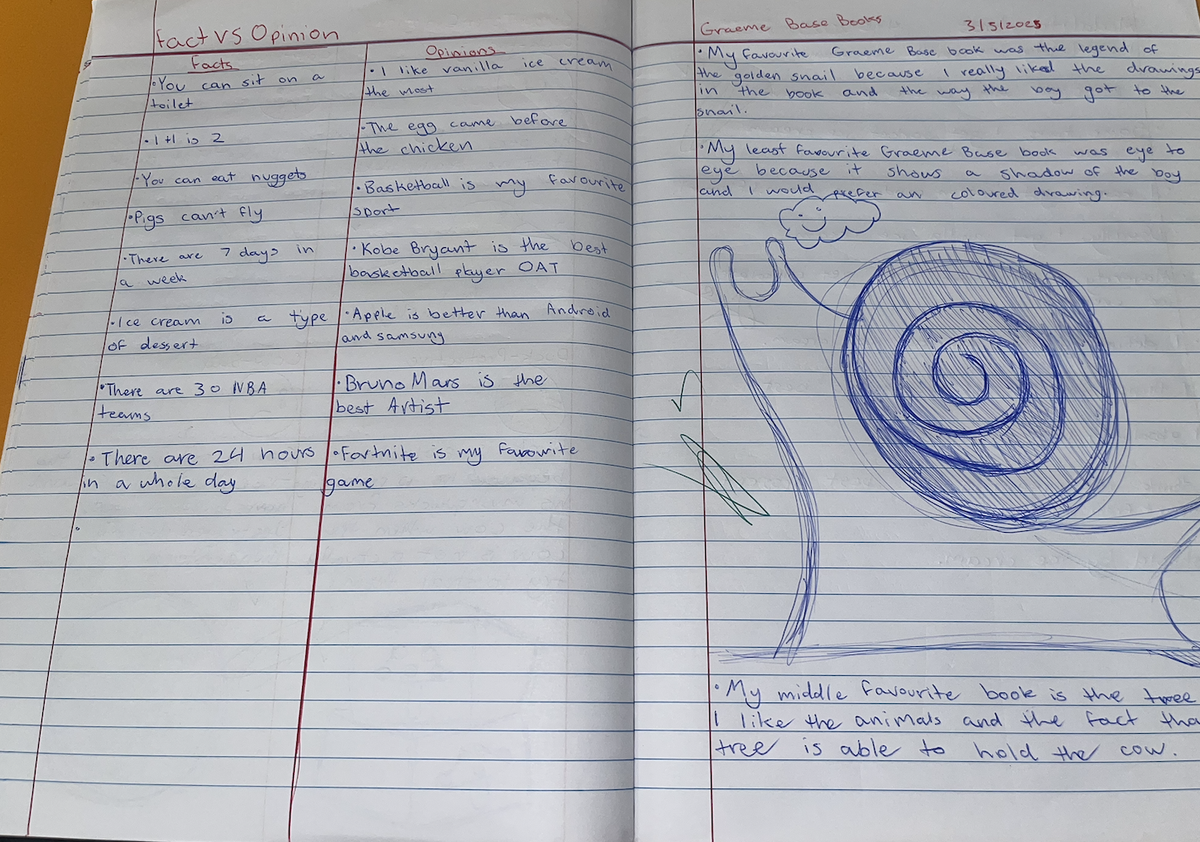 Fact vs Opinion
Facts
• You can sit on a
toilet
• 1+1 is 2
• You can eat nuggets
• Pigs can't fly
• There are 7 days in
a week
• Ice cream is a type
of dessert
• There are 30 NBA
teams
• There are 24 hours
in a whole day
•
Opinions
• I like vanilla ice cream
the most
• The egg came before
the chicken
• Basketball is my favourite
sport
• Kobe Bryant is the best
basketball player OAT
• Apple is better than Android
and samsung
• Bruno Mars is the
best Artist
• Fortnite is my favourite
game
Graeme Base Books 3/5/2025
• My favourite Graeme Base book was the legend of
the golden snail because I really liked the drawings
in the book and the way the boy got to the
snail.
• My least favourite Graeme Base book was eye to
eye because it shows a shadow of the boy
and I would prefer an coloured drawing.
• My middle favourite book is the tree
I like the animals and the fact tha
tree is able to hold the cow.